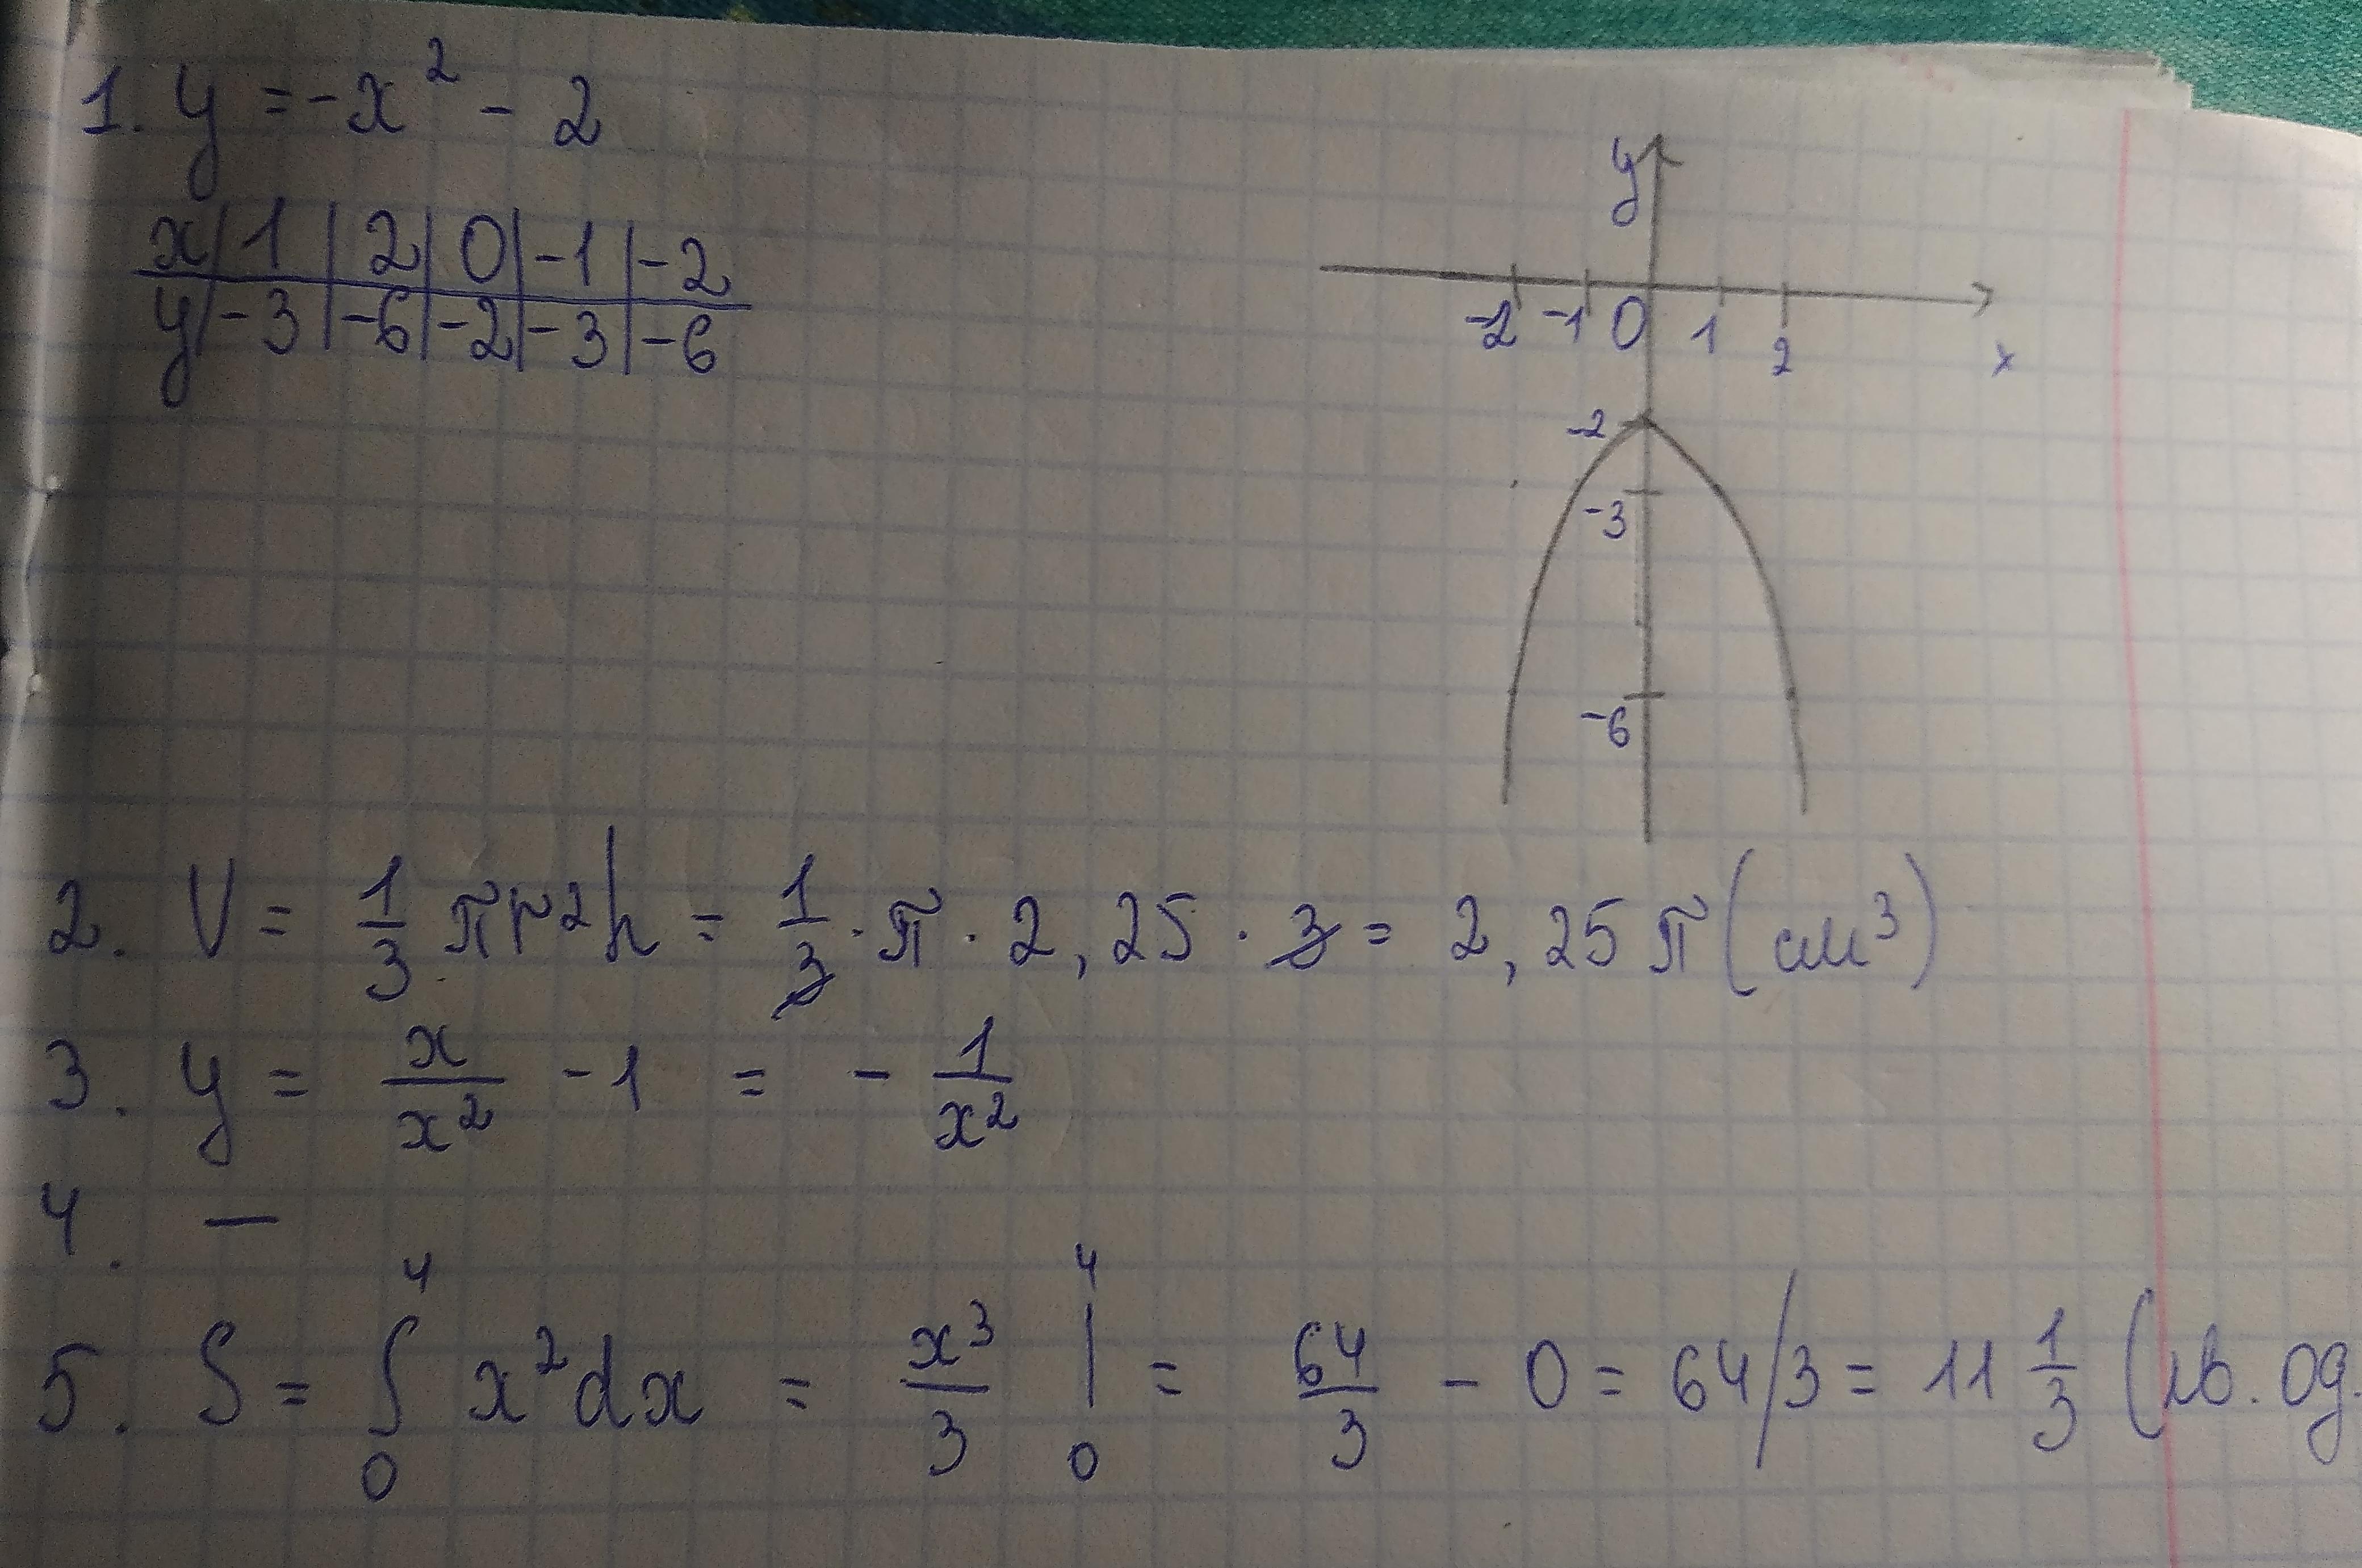 1. y = -x² - 2
x | 1 | 2 | 0 | -1 | -2
y | -3 | -6 | -2 | -3 | -6
y
-2 -1 0 1 2 x
-2
-3
-6
2. V = 1/3 πr²h = 1/3 · π · 2,25 · 3 = 2,25 π (см³)
3. y = x/x² - 1 = - 1/x²
4. —
5. S = ∫₀⁴ x²dx = x³/3 |₀⁴ = 64/3 - 0 = 64/3 = 11 1/3 (кв. од.